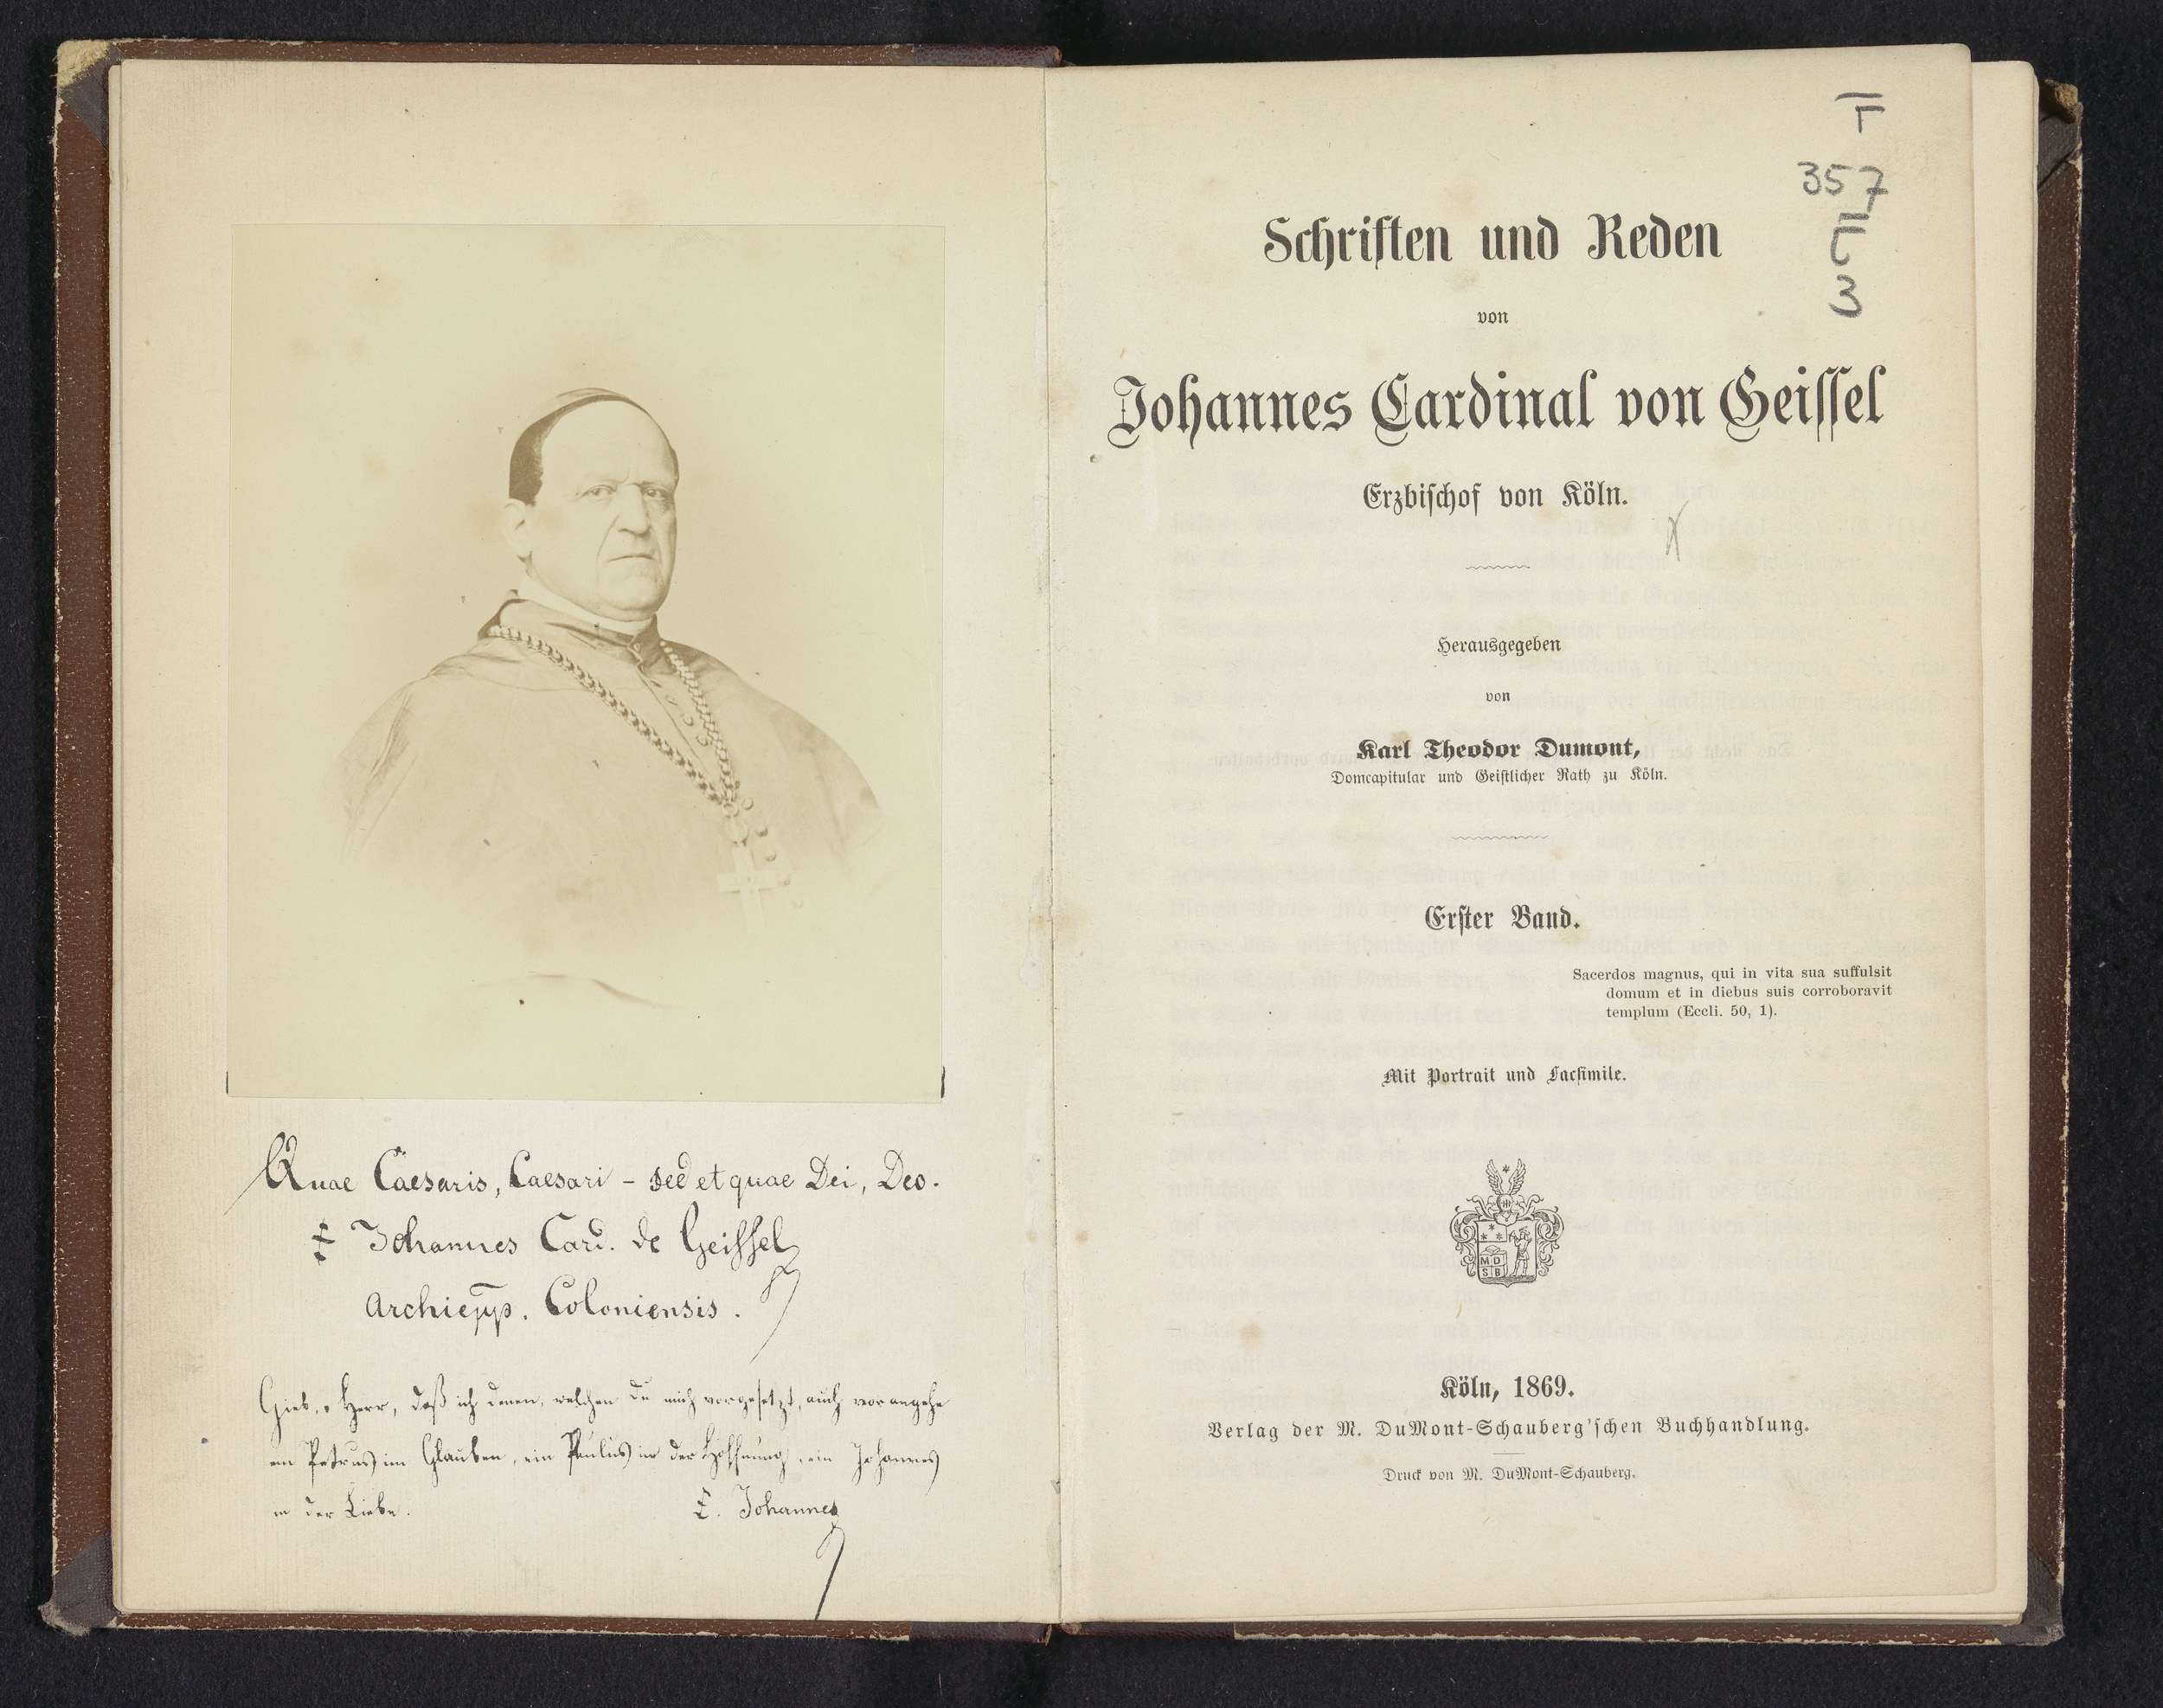 Quae Caesaris, Caesari – sed et quae Dei, Deo.
‡ Johannes Card. de Geissel
Archiepps. Coloniensis.
Gieb, o Herr, daß ich denen, welchen du mich vorgesetzt, auch vorangehe
ein Petrus im Glauben, ein Paulus in der Hoffnung, ein Johannes
in der Liebe.
‡. Johannes
F
357
E
3
Schriften und Reden
von
Johannes Cardinal von Geissel
Erzbischof von Köln.
Herausgegeben
von
Karl Theodor Dumont,
Domcapitular und Geistlicher Rath zu Köln.
Erster Band.
Sacerdos magnus, qui in vita sua suffulsit
domum et in diebus suis corroboravit
templum (Eccli. 50, 1).
Mit Portrait und Facsimile.
MD
SB
Köln, 1869.
Verlag der M. DuMont-Schauberg'schen Buchhandlung.
Druck von M. DuMont-Schauberg.